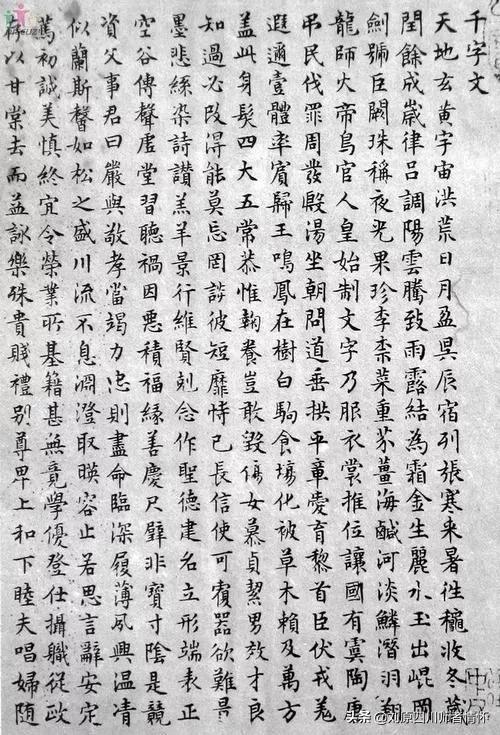 千字文
天地玄黄宇宙洪荒日月盈昃辰宿列張寒来暑往穐收冬蔵
閏餘成歲律吕調陽雲騰致雨露結為霜金生麗水玉出崐岡
劍號巨闕珠稱夜光果珍李柰菜重芥薑海鹹河淡鱗潛羽翔
龍師火帝鳥官人皇始制文字乃服衣裳推位讓國有虞陶唐
吊民伐罪周發殷湯坐朝問道垂拱平章愛育黎首臣伏戎羌
遐邇壹體率賓歸王鳴鳳在樹白駒食場化被草木賴及萬方
盖此身髮四大五常恭惟鞠養豈敢毀傷女慕貞絜男效才良
知過必改得能莫忘罔談彼短靡恃己長信使可覆器欲難量
墨悲絲染詩讚羔羊景行維賢剋念作聖德建名立形端表正
空谷傳聲虛堂習聽禍因惡積福緣善慶尺璧非寶寸陰是競
資父事君曰嚴與敬孝當竭力忠則盡命臨深履薄夙興温凊
似蘭斯馨如松之盛川流不息淵澄取暎容止若思言辭安定
篤初誠美慎終宜令榮業所基籍甚無竟學優登仕攝職從政
存以甘棠去而益詠樂殊貴賤禮别尊卑上和下睦夫唱婦随
头条 @刘原四川师者情怀